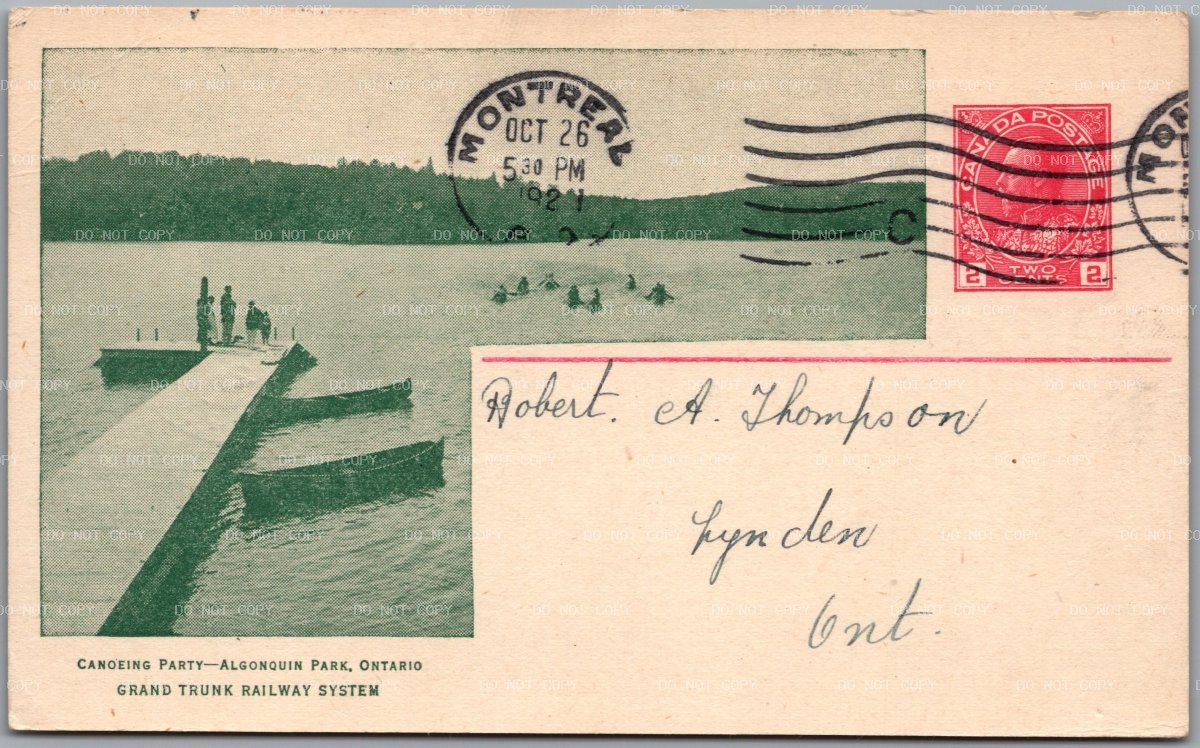 MONTREAL
OCT 26
5 30 PM
1921
P. Q.
C
CANADA POSTAGE
2 TWO CENTS 2
MON
Robert. A. Thompson
Lynden
Ont.
CANOEING PARTY—ALGONQUIN PARK, ONTARIO
GRAND TRUNK RAILWAY SYSTEM
DO NOT COPY